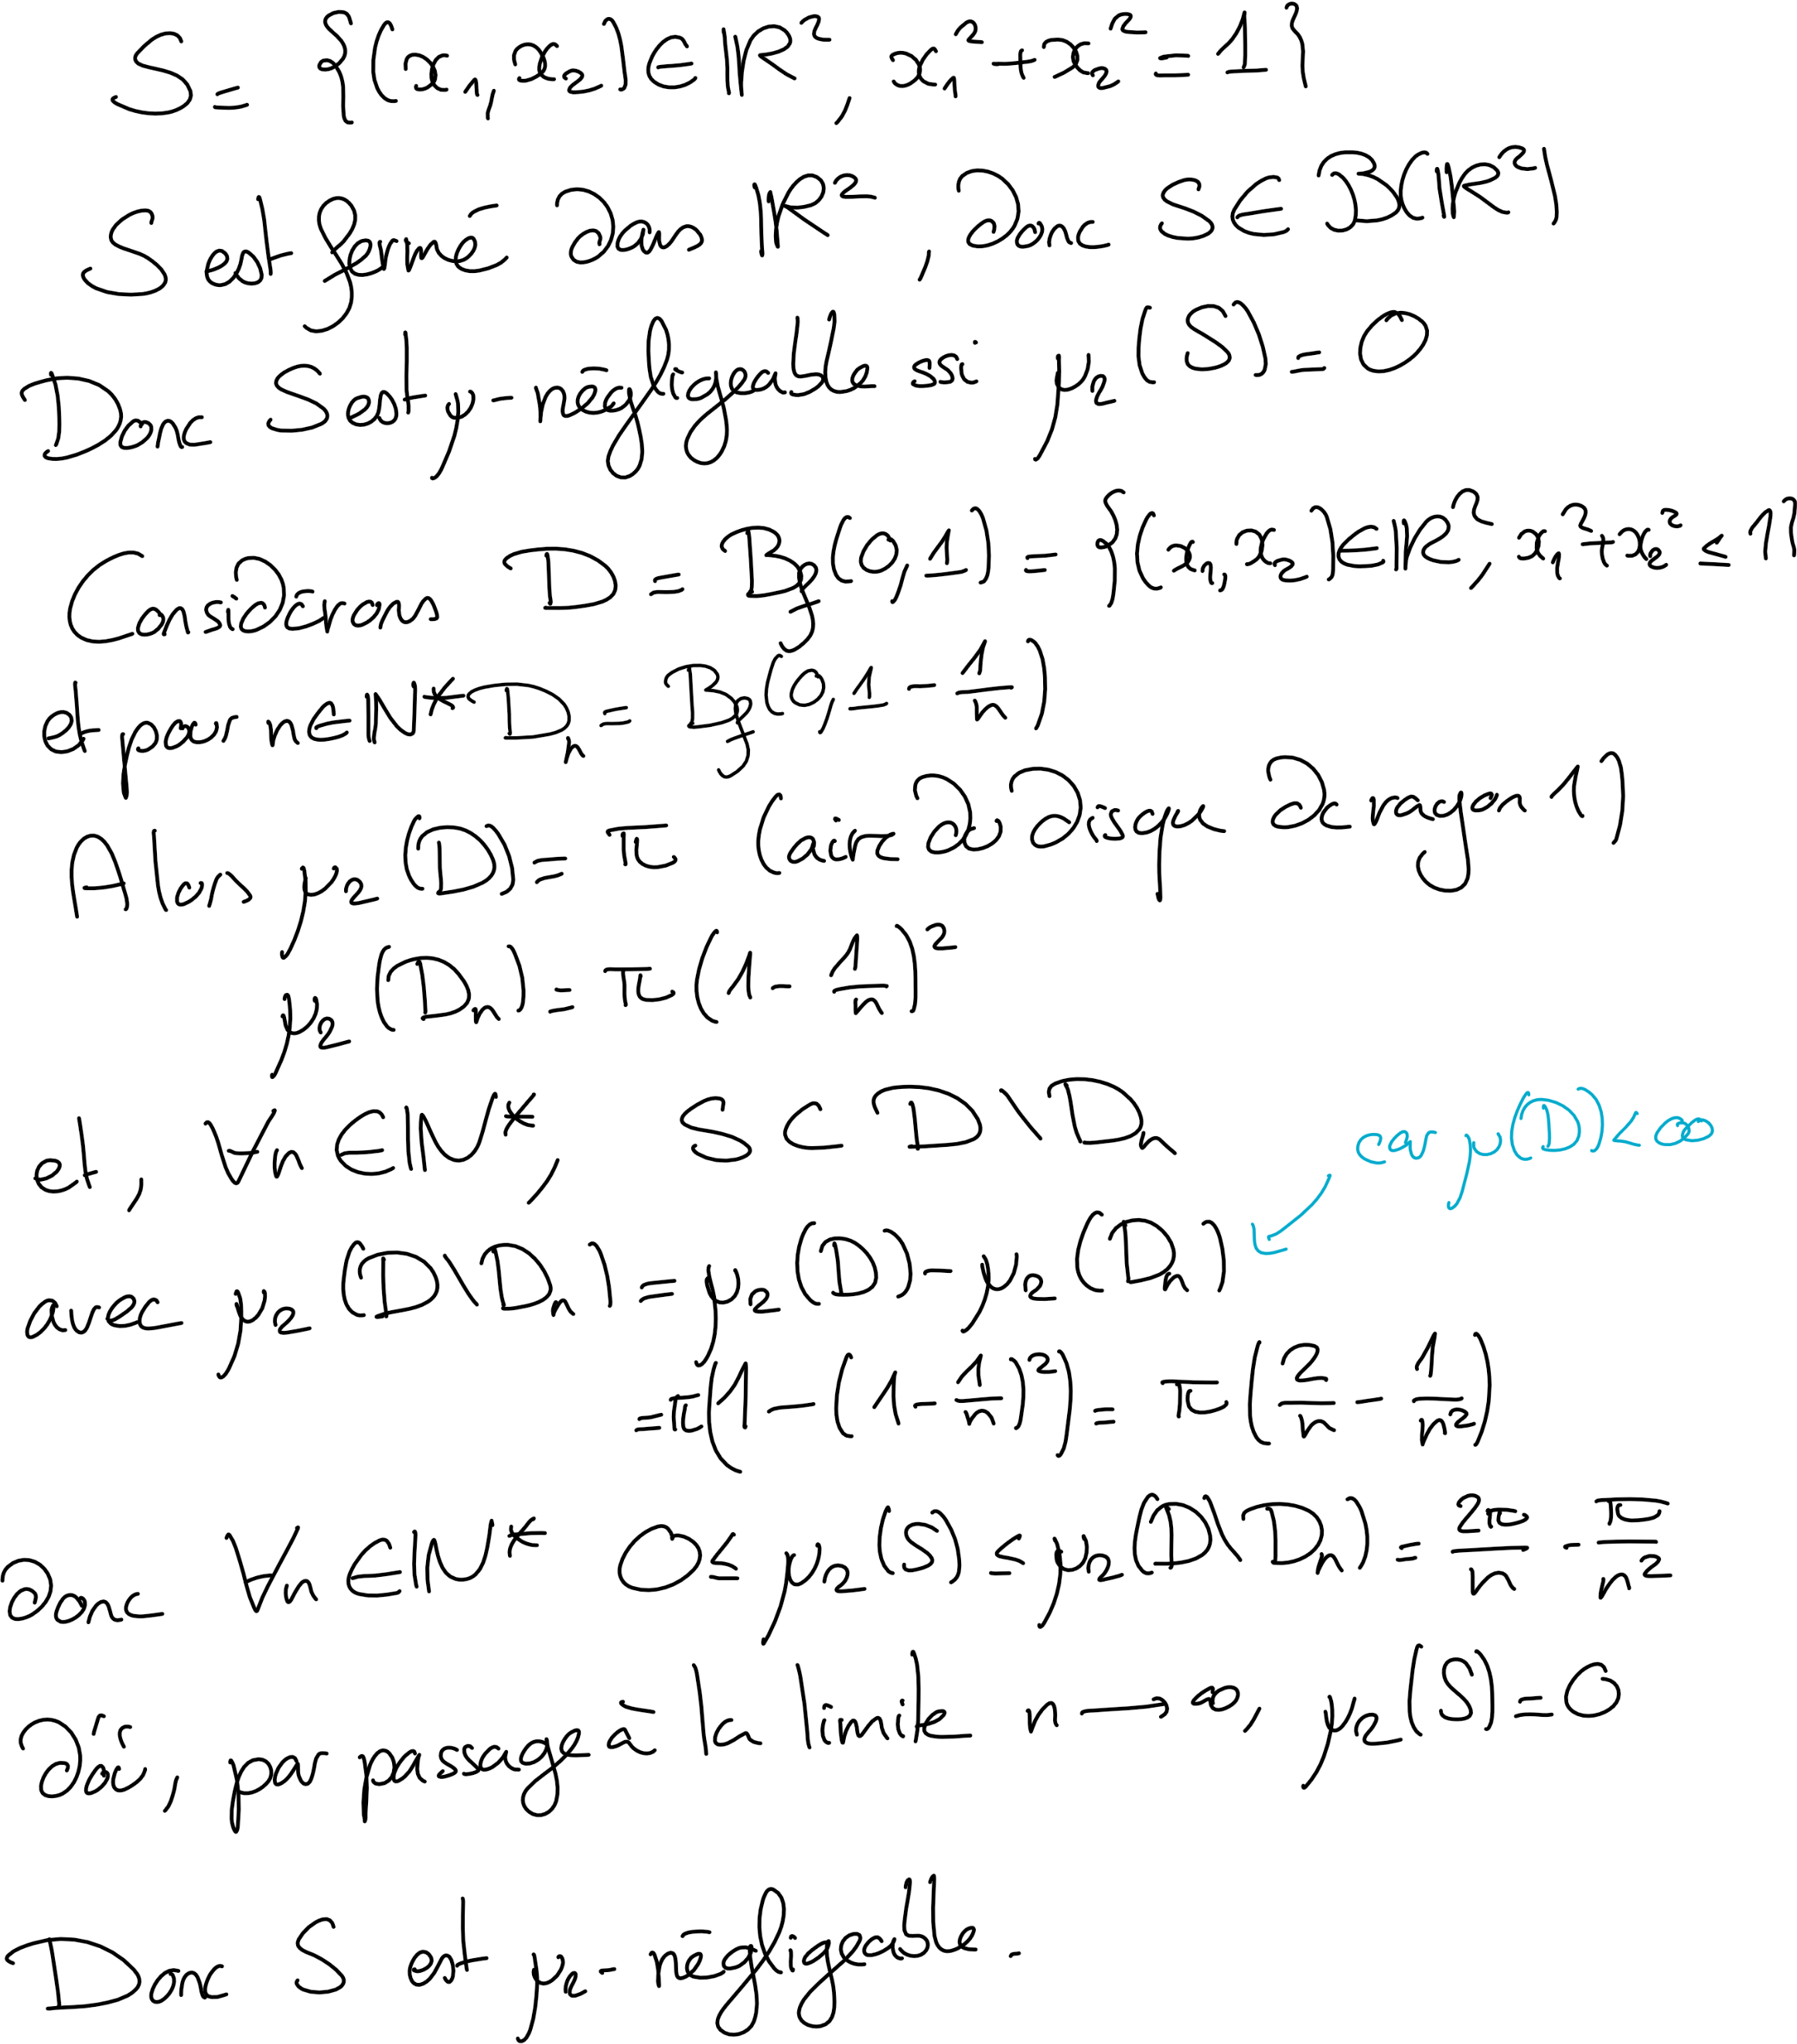 S = {(x₁, x₂) ∈ ℝ², x₁² + x₂² = 1}
S est fermé dans ℝ², donc S ∈ B(ℝ²)
Donc S est μ-négligeable ssi μ₂(S) = 0
Considérons D = B_f(0, 1) = {(x₁, x₂) ∈ ℝ², x₁² + x₂² ≤ 1}
et pour n ∈ ℕ* D_n = B_f(0, 1 - 1/n)
Alors μ₂(D) = π (aire du disque de rayon 1)
μ₂(D_n) = π(1 - 1/n)²
et, ∀n ∈ ℕ*, S ⊂ D\D_n
car μ(D) < ∞
avec μ₂(D\D_n) = μ₂(D) - μ₂(D_n)
= π(1 - (1 - 1/n)²) = π(2/n - 1/n²)
donc ∀n ∈ ℕ* 0 ≤ μ₂(S) ≤ μ₂(D\D_n) = 2π/n - π/n²
D'où, par passage à la limite n → ∞, μ₂(S) = 0
Donc S est μ₂-négligeable.